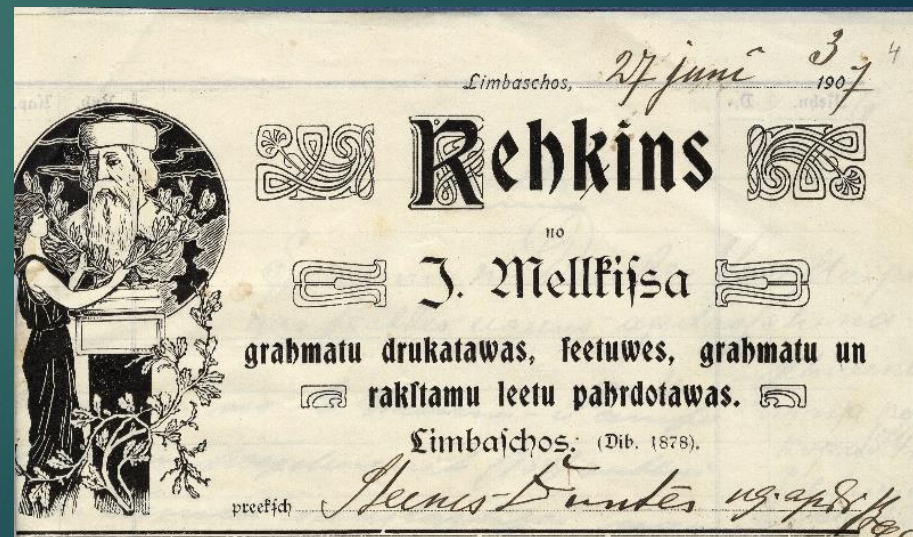 4
Limbaschos, 27 juni 1907
3
Rehkins
no
J. Mellkiſsa
grahmatu drukatawas, ſeetuwes, grahmatu un
rakſtamu leetu pahrdotawas.
Limbaſchos. (Dib. 1878).
preekſch Steenes-Duntes ug. apdr.